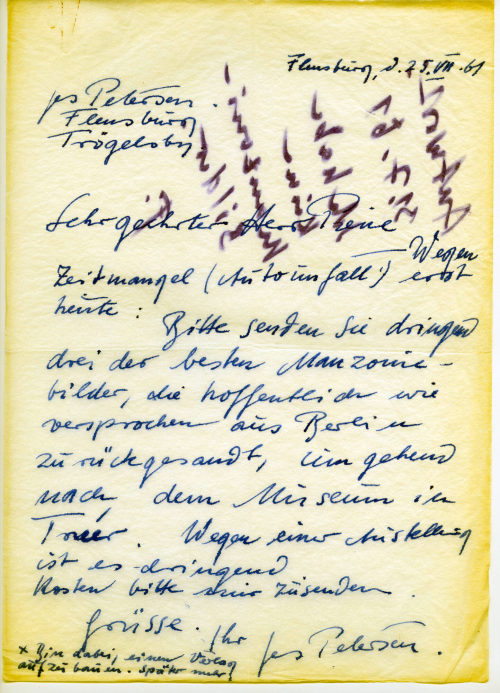 Flensburg, d. 25. VII. 61
jes Petersen.
Flensburg
Trögelsby
Sehr geehrter Herr Piene
— Wegen
Zeitmangel (Autounfall!) erst
heute :
Bitte senden Sie dringend
drei der besten Manzonie-
bilder, die hoffentlich wie
versprochen aus Berlin
zurückgesandt, umgehend
nach dem Museum in
Trier. Wegen einer Austellung
ist es dringend
Kosten bitte mir zusenden.
Grüsse. Ihr
jes Petersen.
* Bin dabei, einen Verlag
aufzubauen. Später mehr